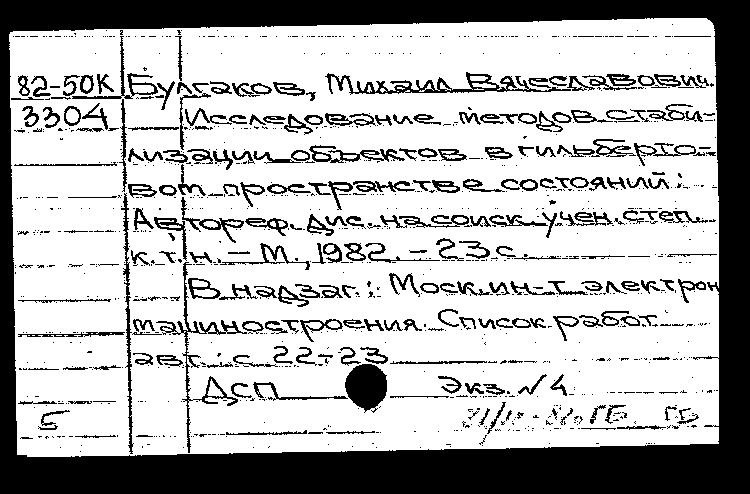 82-50К Булгаков, Михаил Вячеславович.
3304 Исследование методов стаби-
лизации объектов в гильберто-
вом пространстве состояний:
Автореф. дис. на соиск. учен. степ.
к.т.н. – М., 1982. – 23 с.
В надзаг.: Моск. ин-т электрон
машиностроения. Список работ
авт.: с. 22-23
ДСП Экз. № 4
Б ГБ ГБ